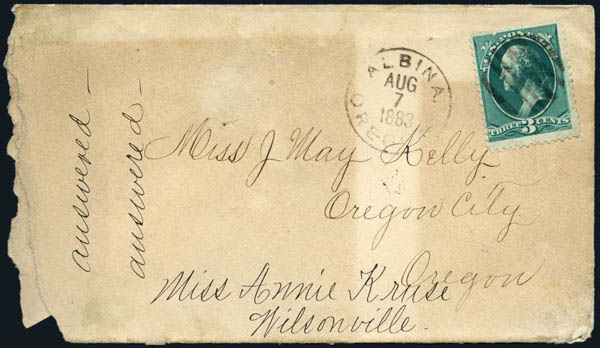 U.S. POSTAGE
THREE 3 CENTS
ALBINA
AUG
7
1883
OREGON
answered —
answered —
Miss J May Kelly
Oregon City
Oregon
Miss Annie Kruse
Wilsonville.